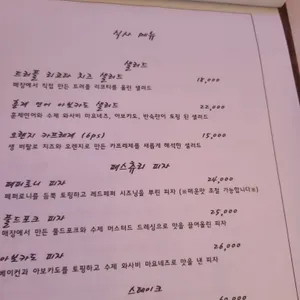 식사 메뉴
샐러드
트러플 리코타 치즈 샐러드 18,000
매장에서 직접 만든 트러플 리코타를 올린 샐러드
훈제 연어 아보카도 샐러드 22,000
훈제연어와 수제 와사비 마요네즈, 아보카도, 반숙란이 토핑 된 샐러드
오렌지 카프레제 (6ps) 15,000
생 버팔로 치즈와 오렌지로 만든 카프레제를 새롭게 해석한 샐러드
페스츄리 피자
페퍼로니 피자 24,000
페퍼로니를 듬뿍 토핑하고 레드페퍼 시즈닝을 뿌린 피자 (※매운맛 조절 가능합니다※)
풀드포크 피자 25,000
매장에서 만든 풀드포크와 수제 머스터드 드레싱으로 맛을 끌어올린 피자
아보카도 피자 26,000
베이컨과 아보카도를 토핑하고 수제 와사비 마요네즈로 맛을 낸 피자
스테이크